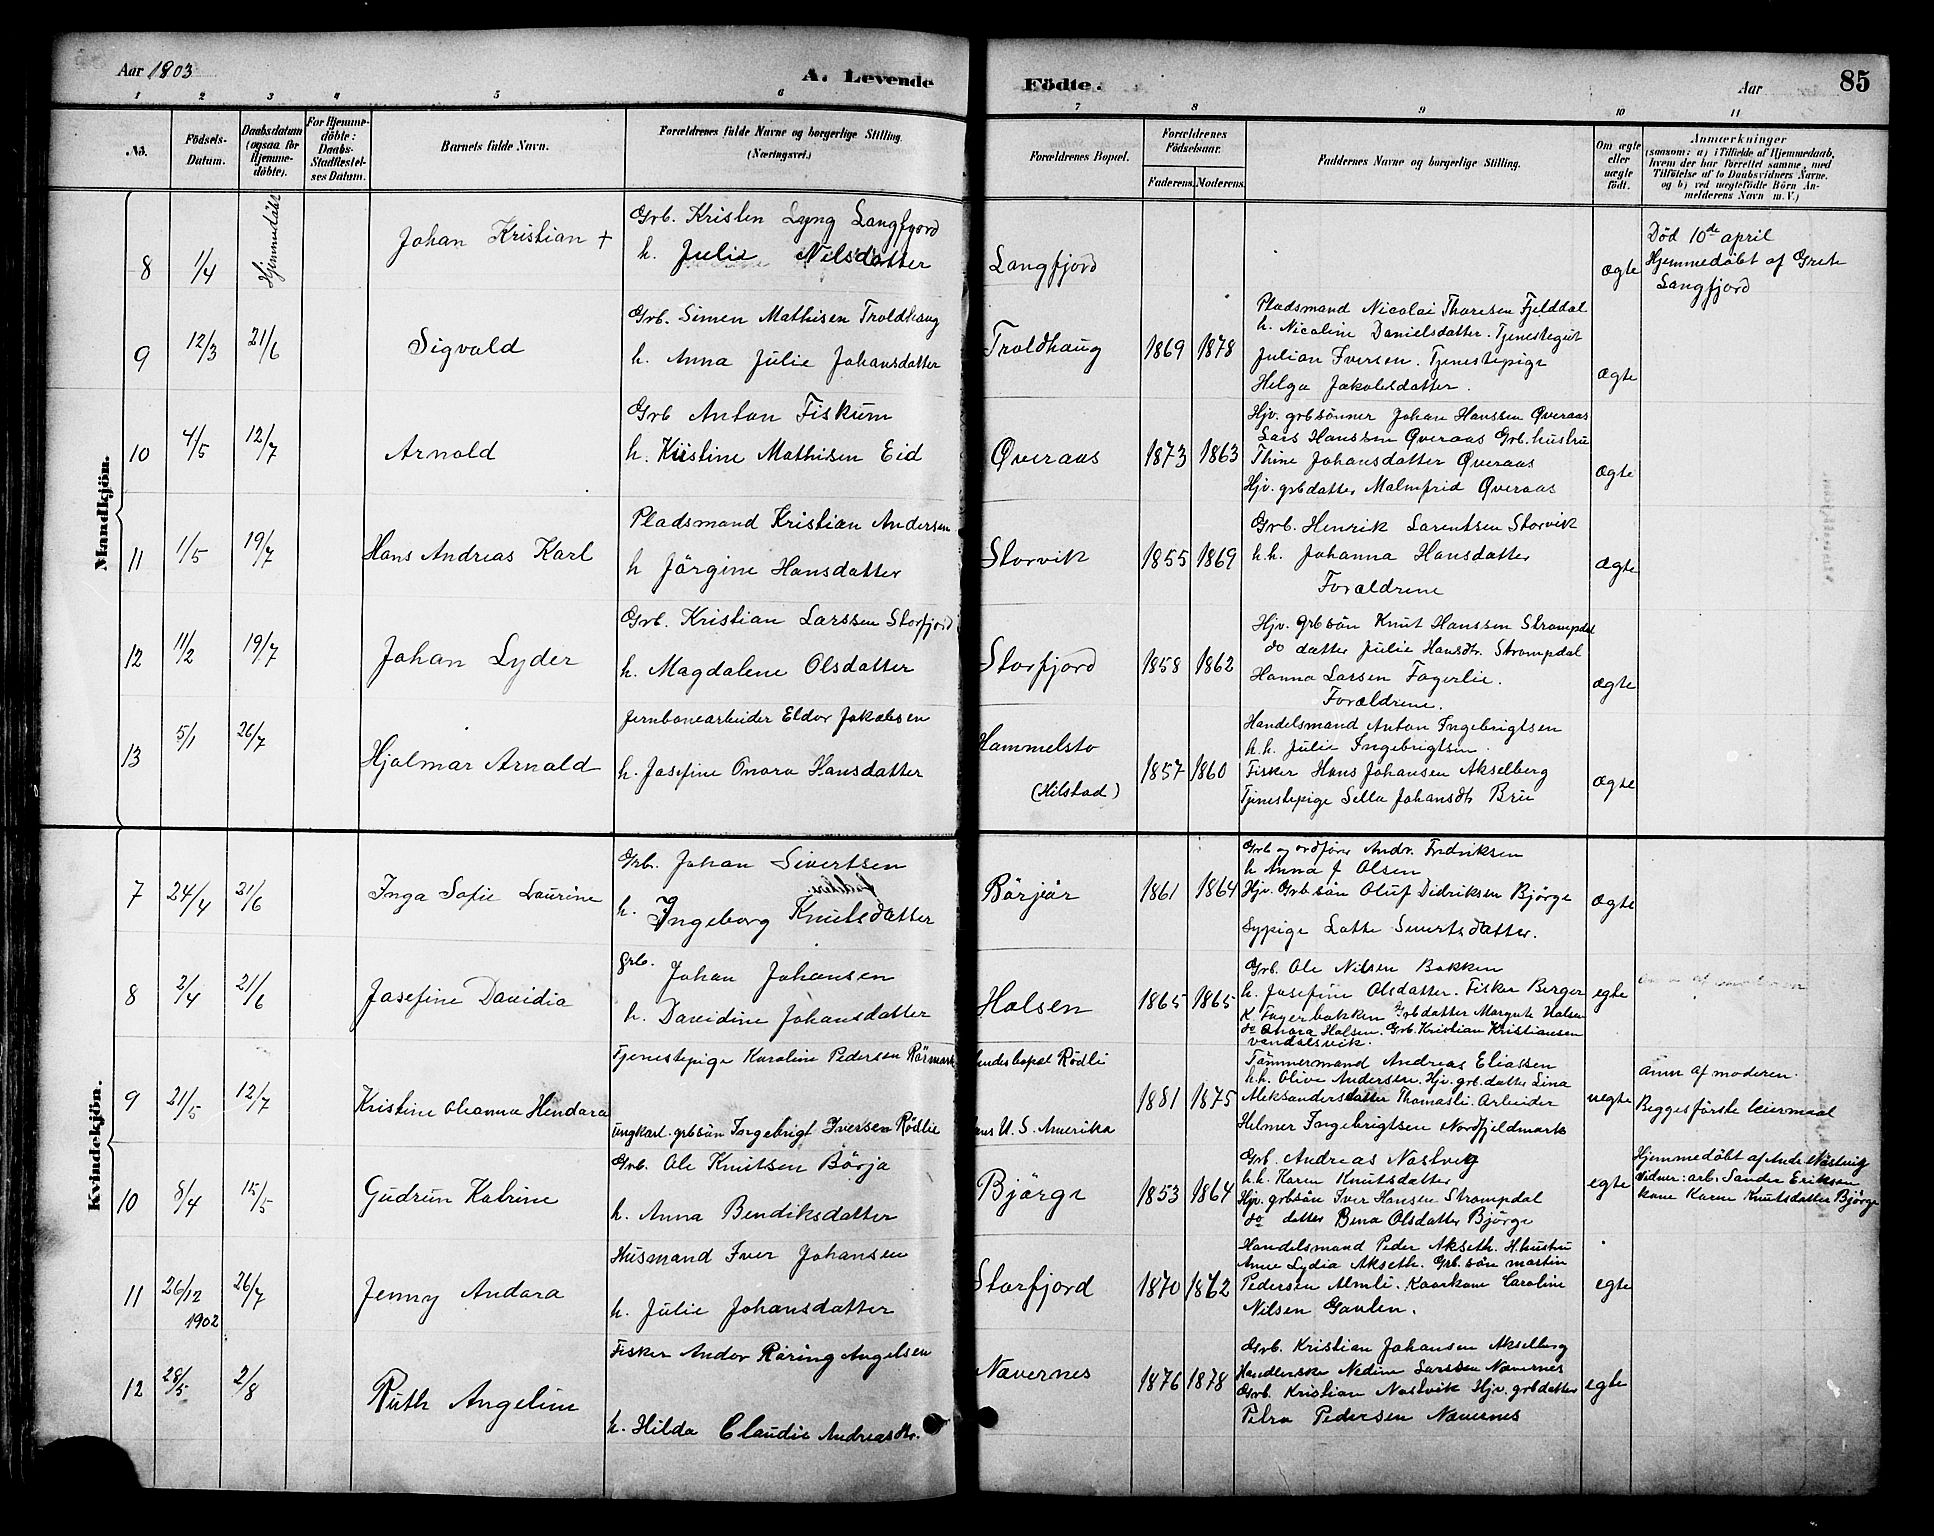 Aar 1903
A. Levende
Födte.
Aar
85
1 2 3 4 5 6 7 8 9 10 11
No.
Födsels-Datum.
Daabsdatum (ogsaa for Hjemmedöbte).
For Hjemmedöbte: Daabs-Stadfæstelses Datum.
Barnets fulde Navn.
Forældrenes fulde Navne og borgerlige Stilling. (Næringsvei.)
Forældrenes Bopæl.
Forældrenes Födselsaar.
Faderens. Moderens.
Faddernes Navne og borgerlige Stilling.
Om ægte eller uægte födt.
Anmærkninger
(saasom: a) i Tilfælde af Hjemmedaab, hvem der har forrettet samme, med Tilföielse af to Daabsvidners Navne. og b) ved uægtefödte Börn Anmelderens Navn m. V.)
Mandkjön.
8 1/4 Hjemmedöbt Johan Kristian +
Grb. Kristen Lyng Langfjord
h. Julie Nilsdatter
Langfjord
ægte
Död 10de april
Hjemmedöbt af Grete
Langfjord
9 12/3 21/6 Sigvald
Grb. Simen Mathisen Troldhaug
h. Anna Julie Johansdatter
Troldhaug 1869 1878
Pladsmand Nicolai Thoresen Fjelddal
h. Nicoline Danielsdatter. Tjenestegut
Julian Iversen. Tjenestepige
Helga Jakobsdatter.
ægte
10 4/5 12/7 Arnold
Grb Anton Fiskum
h. Kristine Mathisen Eid
Overaas 1873 1863
Hjv. grbsönner Johan Hanssen Overaas
Lars Hanssen Overaas Grb. hustru
Thine Johansdatter Overaas
Hjv. grbdatter Malmfrid Overaas
ægte
11 1/5 19/7 Hans Andreas Karl
Pladsmand Kristian Andersen
h Jörgine Hansdatter
Storvik 1855 1869
Grb. Henrik Larentsen Storvik
h.h. Johanna Hansdatter
Forældrene
ægte
12 11/2 19/7 Johan Lyder
Grb. Kristian Larssen Storfjord
h. Magdalene Olsdatter
Storfjord 1858 1862
Hjv. grbsön Knut Hanssen Strompdal
do datter Julie Hansdtr. Strompdal
Hanna Larsen Fagerlie.
Forældrene.
ægte
13 5/1 26/7 Hjalmar Arnold
Jernbanearbeider Eldor Jakobsen
h. Josefine Onara Hansdatter
Hammelsto
(Hilstad)
1857 1860
Handelsmand Anton Ingebrigtsen
h.h. Julie Ingebrigtsen.
Fisker Hans Johansen Akselberg
Tjenestepige Sella Johansdtr Bru
ægte
Kvindekjön.
7 24/4 21/6 Inga Sofie Laurine
Grb. Johan Sivertsen
h. Ingeborg Knutsdatter
Börjeör 1861 1864
Grb og ordförer Andr. Fredriksen
h Anna J Olsen
Hjv. Grb sön Oluf Didriksen Bjørge
Sypige Lotte Sivertsdatter.
ægte
8 2/4 21/6 Josefine Davidia
grb. Johan Johansen
h. Davidine Johansdatter
Holsen 1865 1865
Grb. Ole Nilsen Bakken
h. Josefine Olsdatter. Fisker Berger
K Fagerbakken Grbdatter Margrete Holsen
do Onora Holsen. Grb. Kristian Kristiansen
Vandalsvik.
egte
9 21/5 12/7 Kristine Oleanna Hendara
Tjenestepige Karoline Pedersen Rörmark
ungkarl. grbsön Ingebrigt Iversen Rödlie
Hendes bopæl Rödli
hans U.S. Amerika
1881 1875
Tömmermand Andreas Eliassen
h.h. Olive Andersen. Hjv. grb. datter Lina
Aleksandersdatter Thomasli. Arbeider
Helmer Ingebrigtsen Nordfjeldmark
uegte
anm af moderen.
Begges förste leiermaal
10 8/4 15/5 Gudrun Katrine
Grb. Ole Knutsen Börja
h. Anna Bendiksdatter
Bjørge 1853 1864
Grb. Andreas Nastvig
h.h. Karen Knutsdatter
Hjv. grbsön Iver Hansen Strompdal
do datter Bena Olsdatter Bjørge
egte
Hjemmedöbt af Andr. Nastvig
Vidner: arb. Sander Eriksen
kone Karen Knutsdatter Bjørge
11 26/12 1902 26/7 Jenny Andora
Husmand Iver Johansen
h. Julie Johansdatter
Storfjord 1870 1862
Handelsmand Peder Akseth. H. hustru
Anne Lydia Akseth. Grb. sön Martin
Pedersen Almli. Kaarkone Caroline
Nilsen Gaulen.
egte
12 28/5 2/8 Ruth Angeline
Fisker Andor Röring Angelsen
h. Hilda Claudie Andreasdtr.
Nævernes 1876 1878
Grb. Kristian Johansen Akselberg
Handlerske Nedine Larssen Nævernes
Grb. Kristian Nastvik Hjv. grbdatter
Petra Pedersen Nævernes
egte